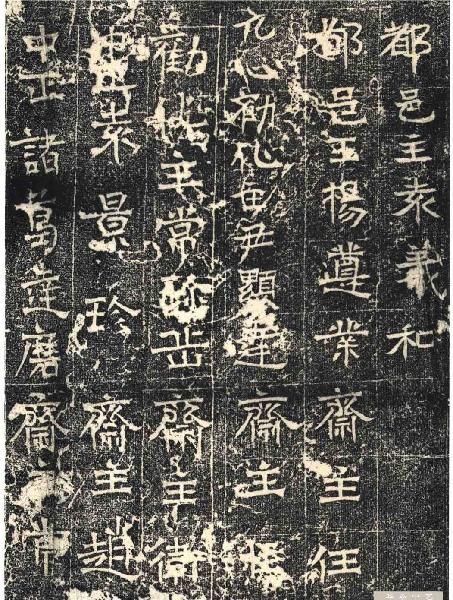 都邑主袁義和
都邑主揚遵業齋主任
勸化主尹顯達齋主
勸化主常岳齋主衛
中正袁景珍齋主趙
中正諸葛達磨齋主常